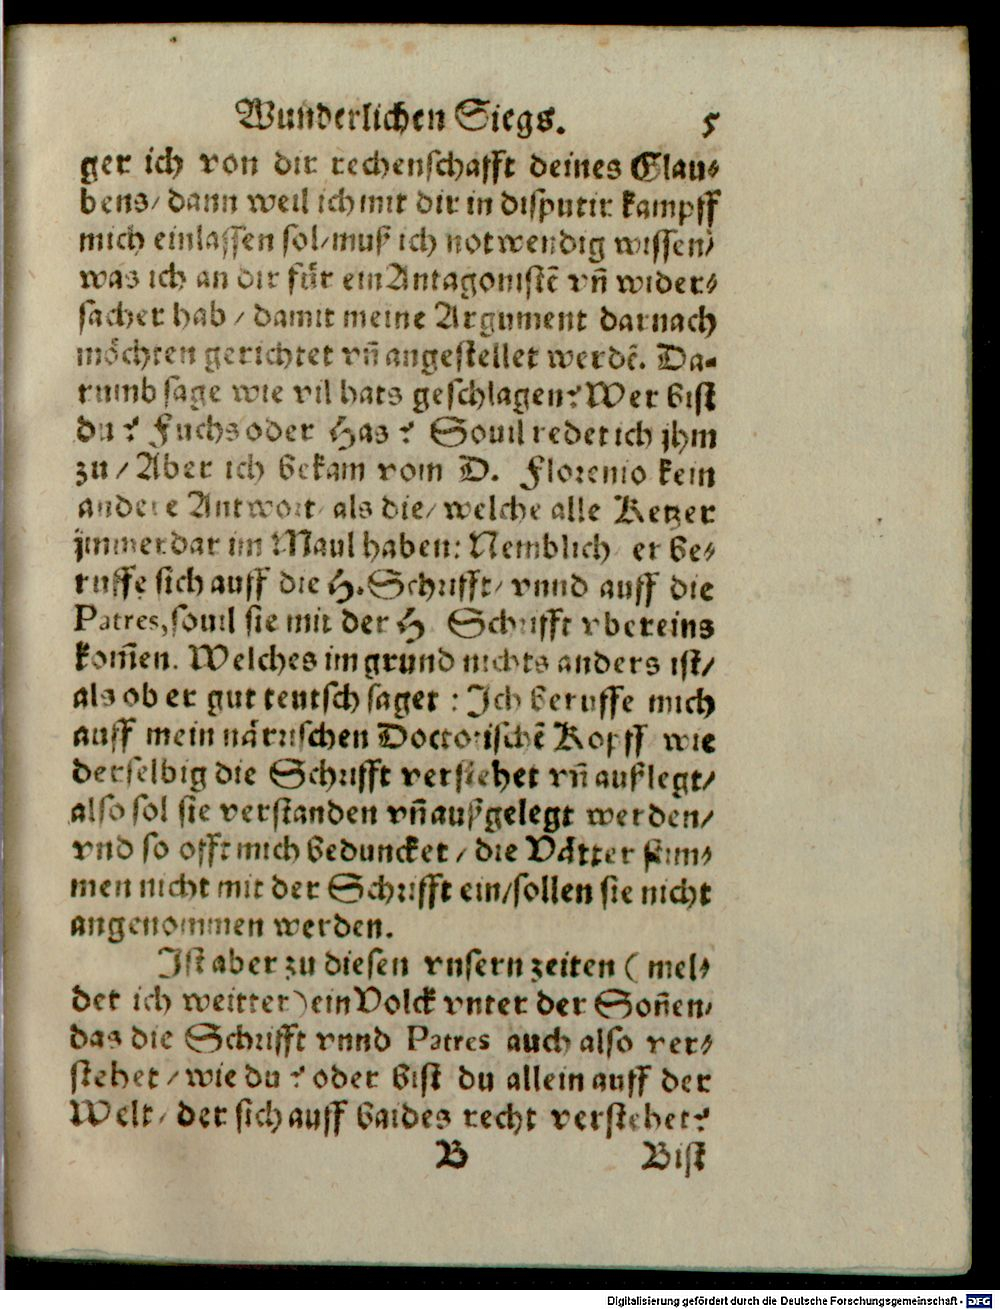 Wunderlichen Siegs. 5
ger ich von dir rechenschafft deines Glau⸗
bens/ dann weil ich mit dir in disputir kampff
mich einlassen sol/ muß ich notwendig wissen/
was ich an dir für ein Antagonistẽ vñ wider⸗
sacher hab / damit meine Argument darnach
möchten gerichtet vñ angestellet werdẽ. Da⸗
rumb sage wie vil hats geschlagen? Wer bist
du? Fuchs oder Has? Souil redet ich jhm
zu / Aber ich bekam vom D. Florenio kein
andere Antwort als die/ welche alle Ketzer
jmmerdar im Maul haben: Nemblich er be⸗
ruffe sich auff die H. Schrifft/ vnnd auff die
Patres, souil sie mit der H Schrifft vbereins
kom̃en. Welches im grund nichts anders ist/
als ob er gut teutsch saget : Ich beruffe mich
auff mein närrischen Doctorischẽ Kopff wie
derselbig die Schrifft verstehet vñ außlegt/
also sol sie verstanden vñ außgelegt werden/
vnd so offt mich beduncket / die Vätter stim⸗
men nicht mit der Schrifft ein/ sollen sie nicht
angenommen werden.
Ist aber zu diesen vnsern zeiten ( mel⸗
det ich weitter) ein Volck vnter der Soñen/
das die Schrifft vnnd Patres auch also ver⸗
stehet / wie du? oder bist du allein auff der
Welt/ der sich auff baides recht verstehet?
B Bist
Digitalisierung gefördert durch die Deutsche Forschungsgemeinschaft - DFG